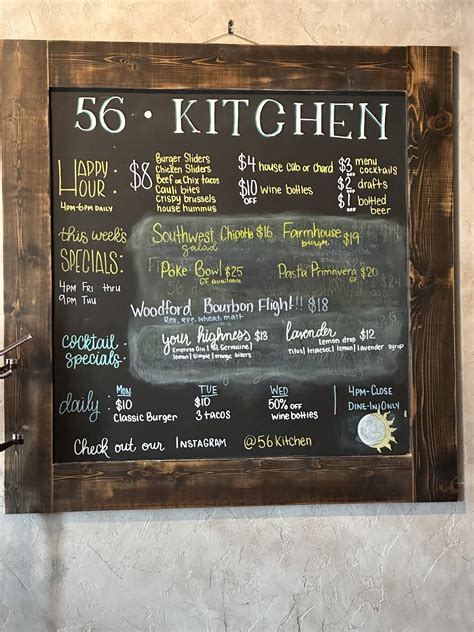 56 • KITCHEN
HAPPY HOUR:
4PM-6PM DAILY
$8
Burger Sliders
Chicken Sliders
Beef or Chix tacos
Cauli bites
Crispy brussels
house hummus
$4 house Cab or Chard
$10 OFF Wine bottles
$3 OFF menu cocktails
$2 OFF drafts
$1 OFF bottled beer
this week's SPECIALS:
4PM Fri thru
9PM Thu
Southwest Chipotle $16
salad
Farmhouse $19
burger
Poke Bowl $25
GF available
Pasta Primavera $20
GF
Woodford Bourbon Flight!! $18
Reg, rye, wheat, malt
cocktail specials:
your highness $13
Empress Gin | St Germaine |
lemon | simple | orange bitters
lavender $12
lemon drop
Titos | triplesec | lemon | lavender syrup
daily:
MON
$10
Classic Burger
TUE
$10
3 tacos
WED
50% OFF
Wine bottles
4PM-CLOSE
DINE-IN ONLY
Check out our INSTAGRAM @56Kitchen